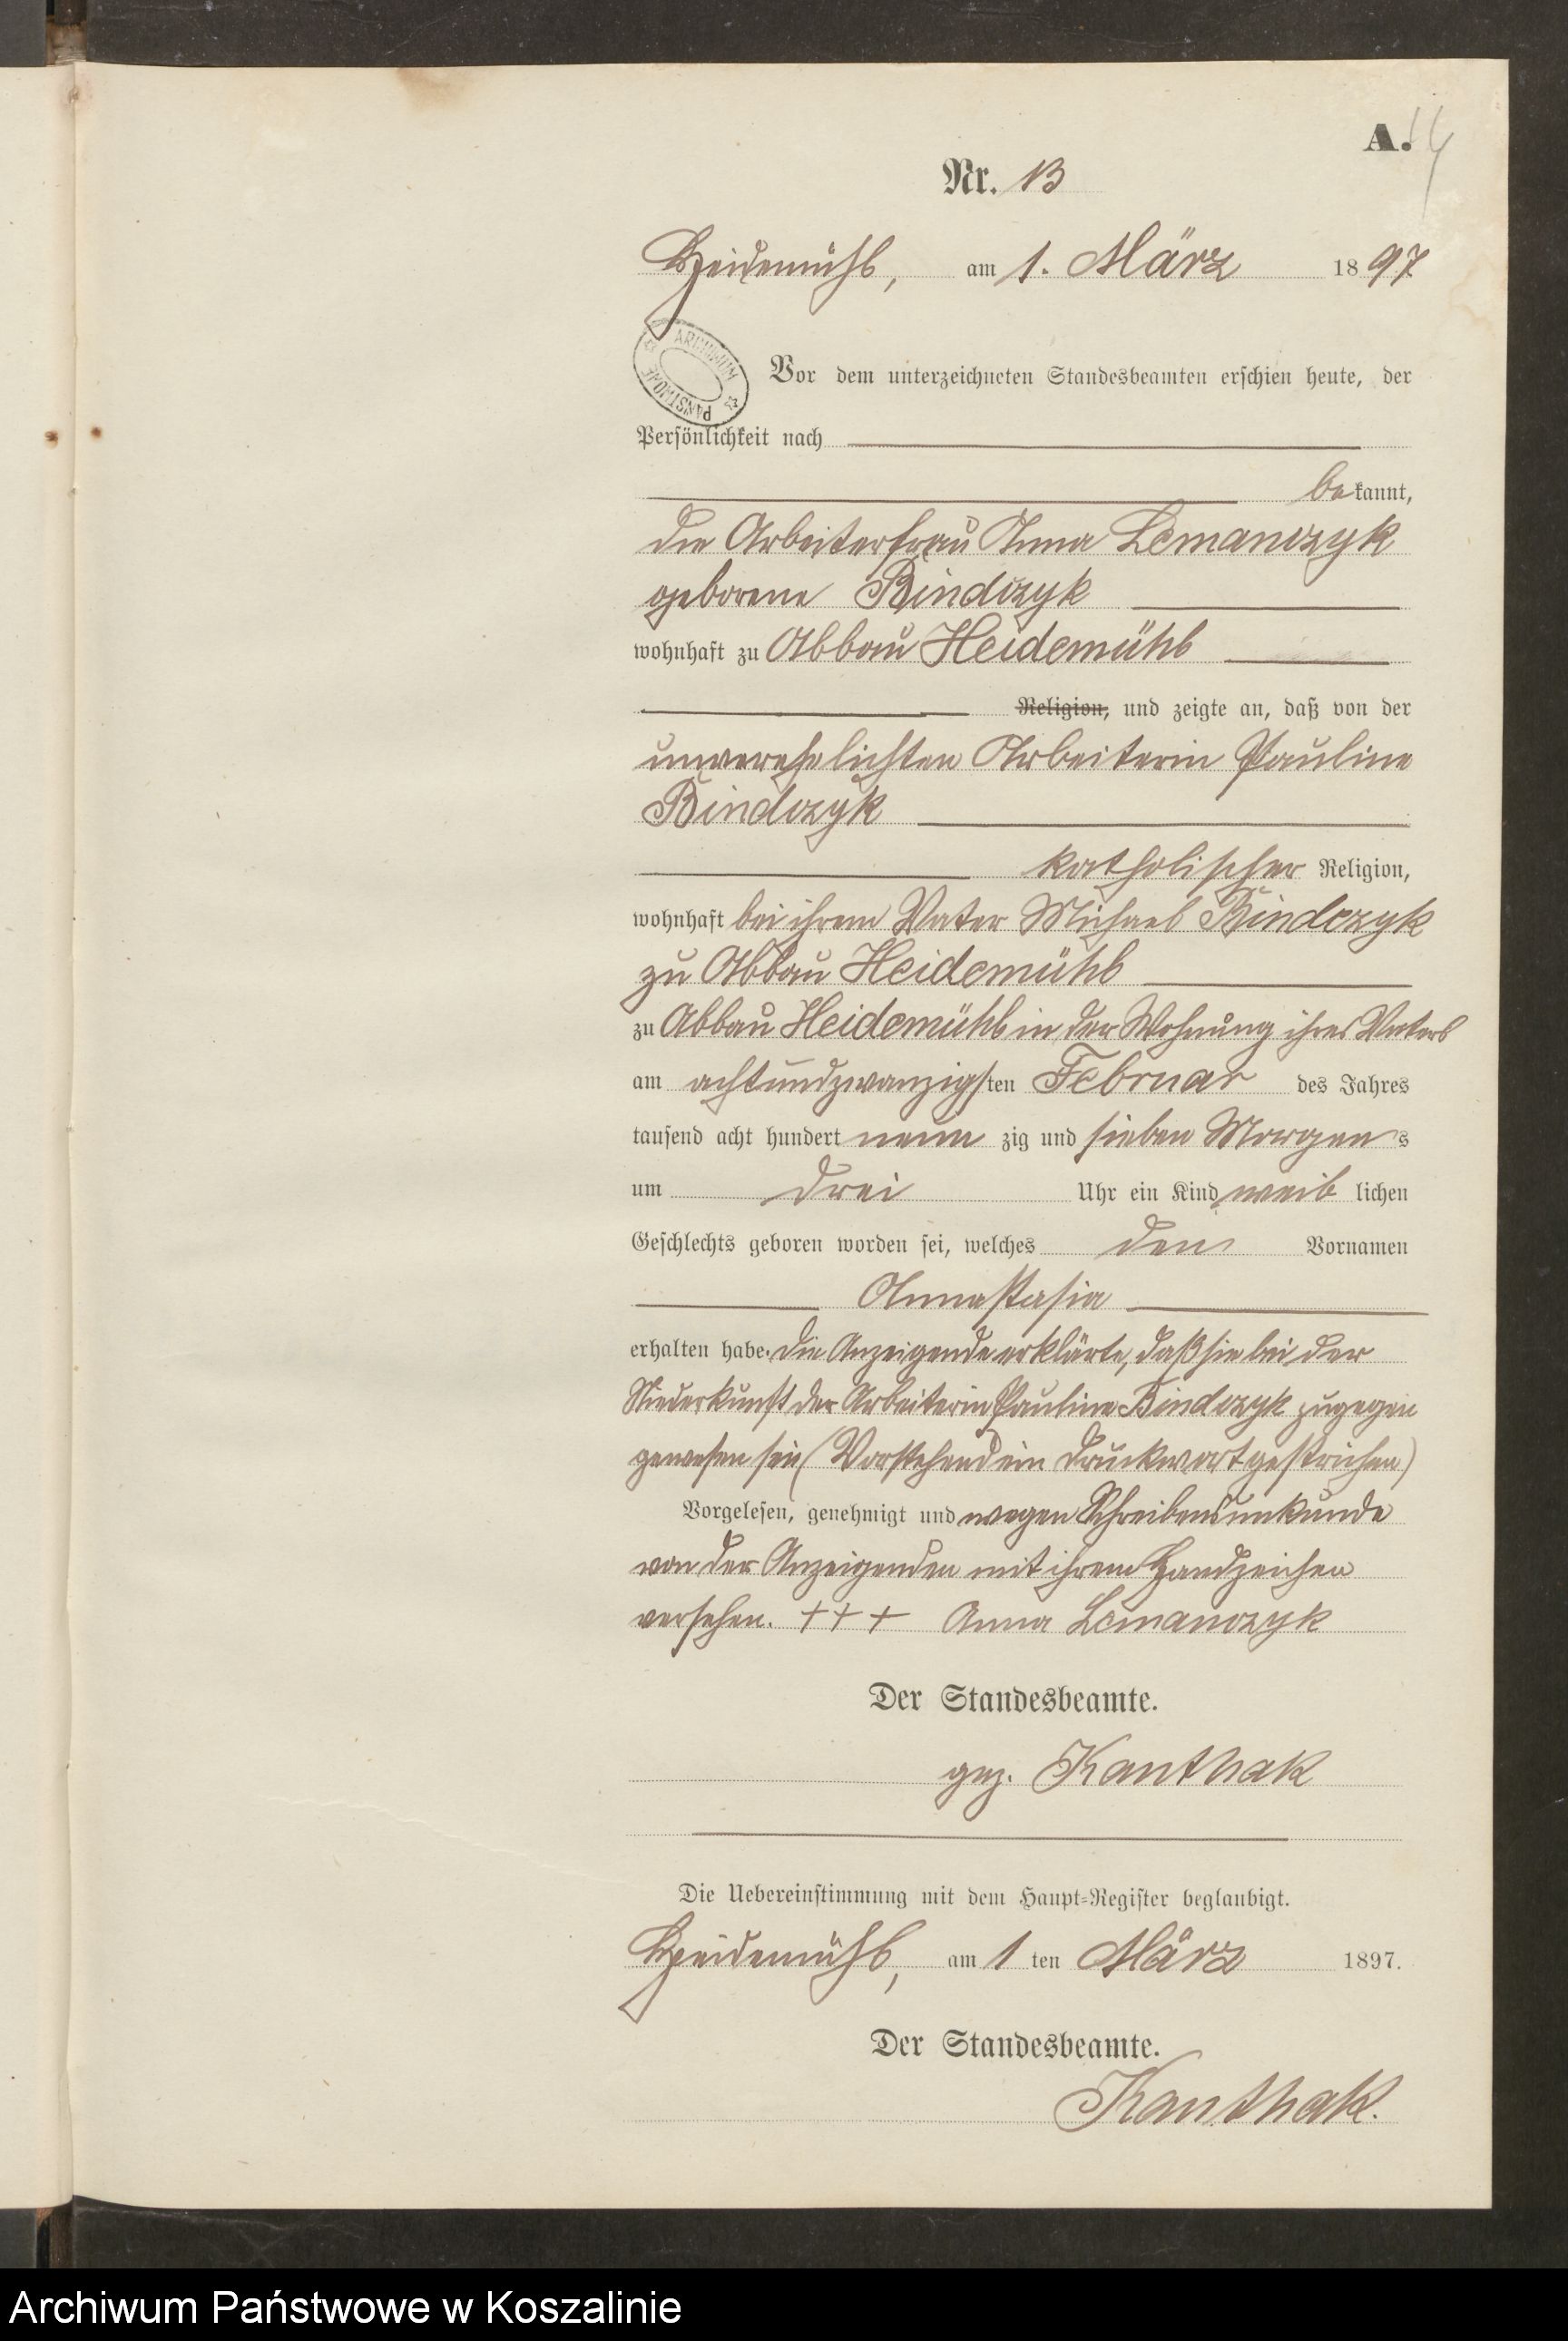 A. 14
Nr. 13
Heidemühl, am 1. März 1897
ARCHIWUM PAŃSTWOWE
Vor dem unterzeichneten Standesbeamten erschien heute, der
Persönlichkeit nach
bekannt,
die Arbeiterfrau Anna Lemanczyk
geborene Bindczyk
wohnhaft zu Abbau Heidemühl
Religion, und zeigte an, daß von der
unverehelichten Arbeiterin Pauline
Bindczyk
katholischer Religion,
wohnhaft bei ihrem Vater Michael Bindczyk
zu Abbau Heidemühl
zu Abbau Heidemühl in der Wohnung ihres Vaters
am achtundzwanzigsten Februar des Jahres
tausend acht hundert neunzig und sieben Morgens
um drei Uhr ein Kind weiblichen
Geschlechts geboren worden sei, welches den Vornamen
Annastasia
erhalten habe. Die Anzeigende erklärte, daß sie bei der
Niederkunft der Arbeiterin Pauline Bindczyk zugegen
gewesen sei (Vorstehend ein Druckwort gestrichen)
Vorgelesen, genehmigt und wegen Schreibensunkunde
von der Anzeigenden mit ihrem Handzeichen
versehen. +++ Anna Lemanczyk
Der Standesbeamte.
gez. Kanthak
Die Uebereinstimmung mit dem Haupt=Register beglaubigt.
Heidemühl, am 1 ten März 1897.
Der Standesbeamte.
Kanthak.
Archiwum Państwowe w Koszalinie